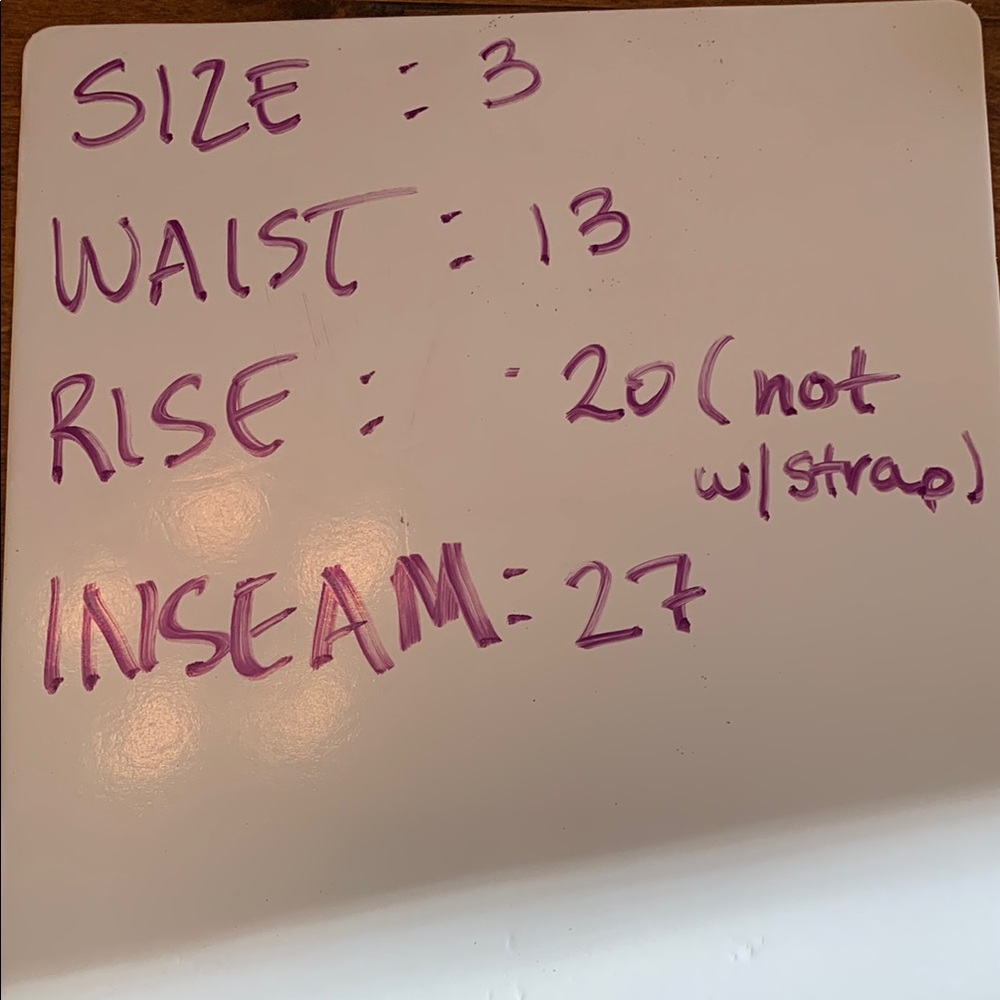 SIZE : 3
WAIST : 13
RISE : - 20 (not
w/strap)
INSEAM : 27